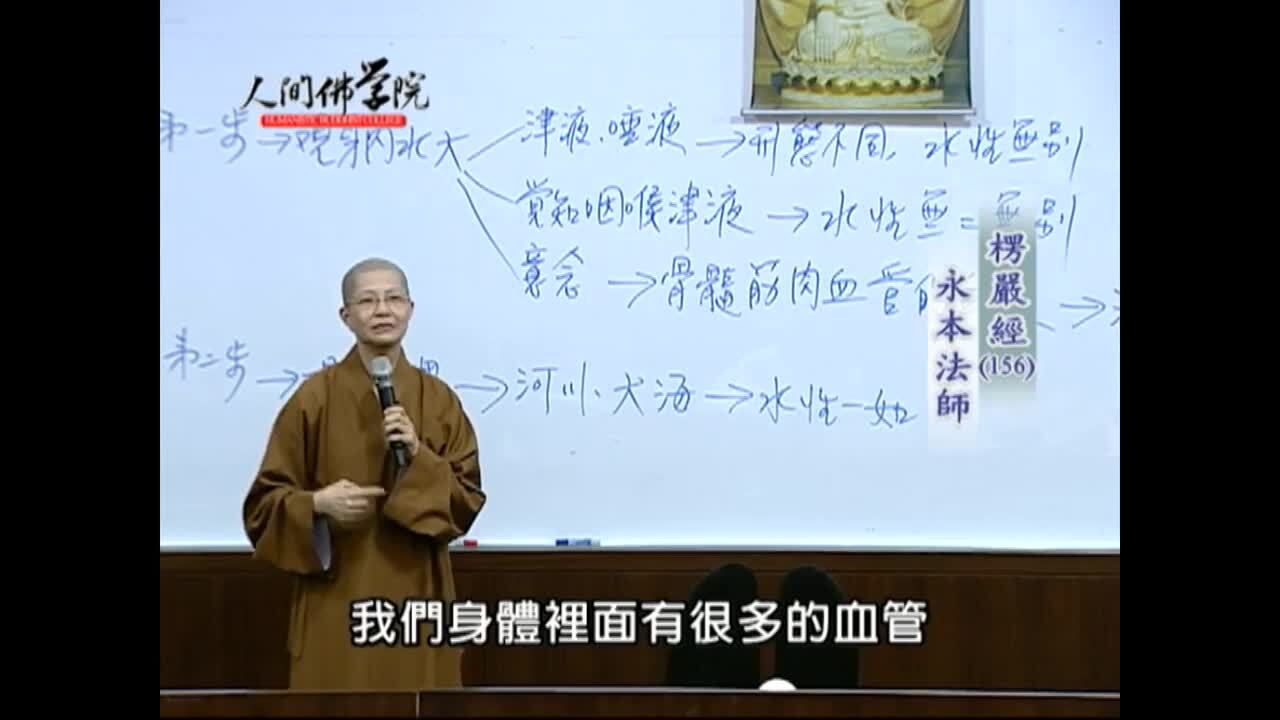 人间佛学院
HUMANISTIC BUDDHIST COLLEGE
第一步→觀身內水大
津液、唾液→形態不同，水性無別
覺知咽喉津液→水性無二無別
意念→骨髓筋肉血管
第二步→
→河川、大海→水性一如
楞嚴經
(156)
永本法師
我們身體裡面有很多的血管